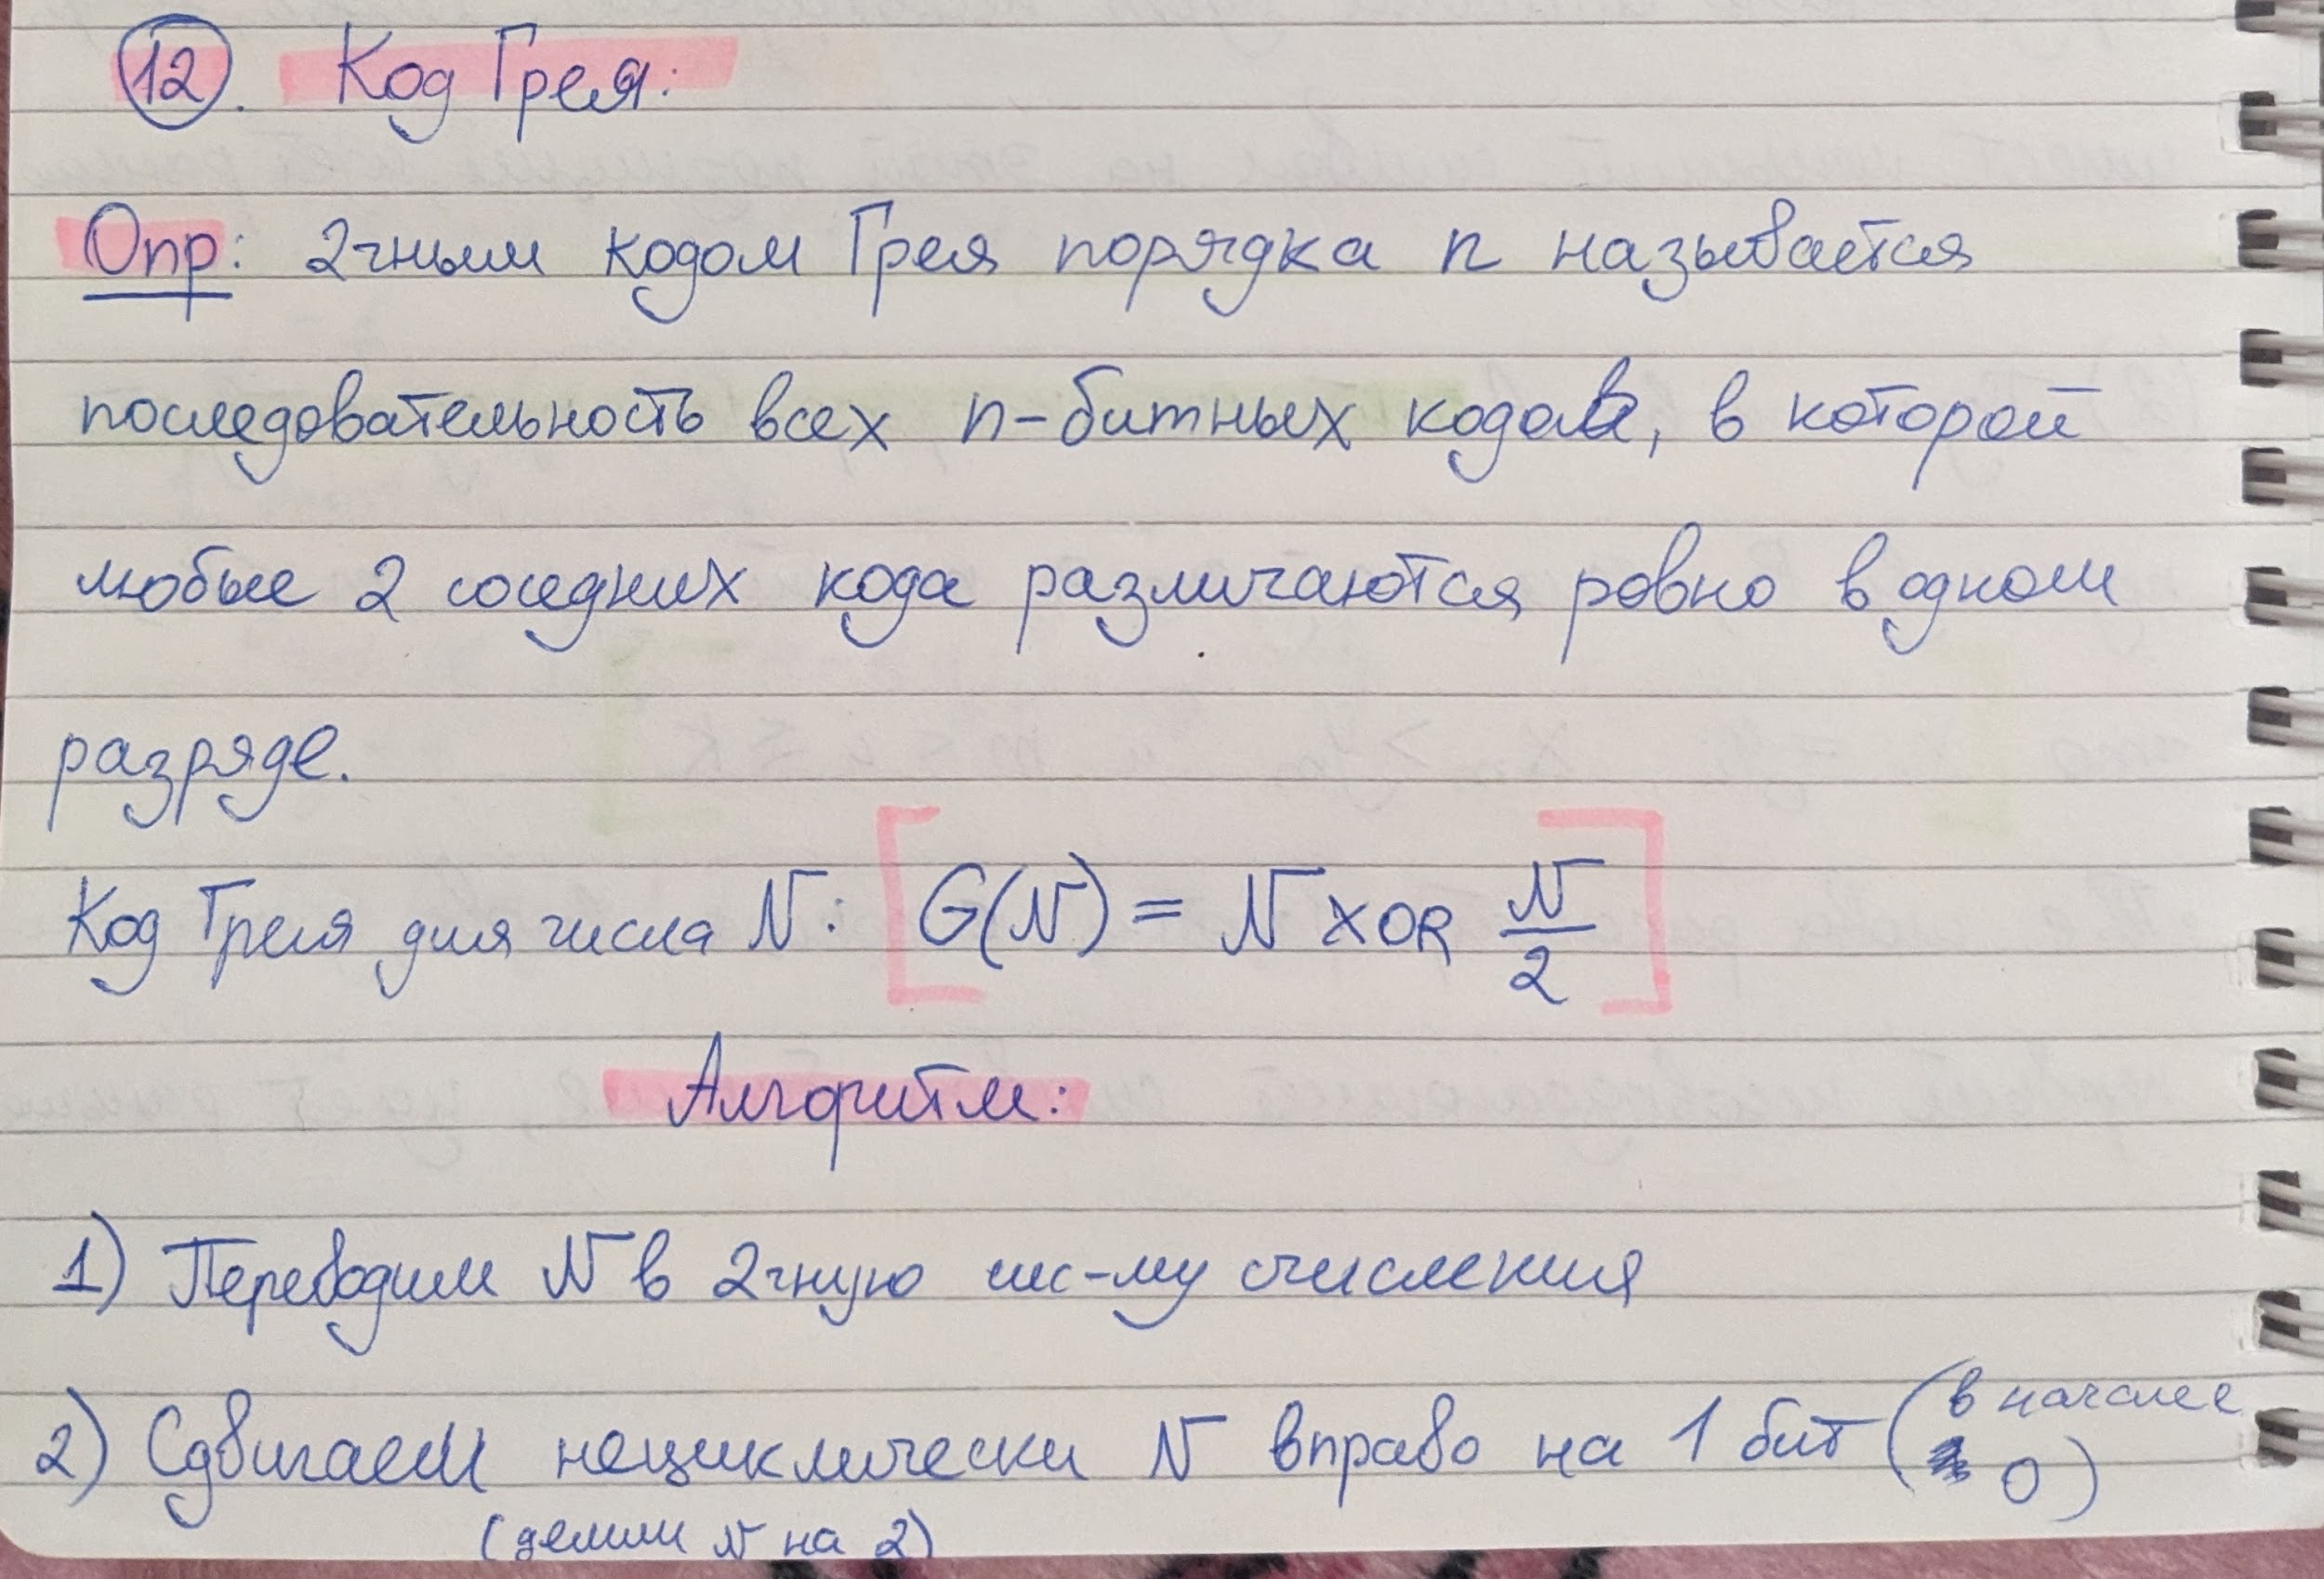 12. Код Грея:
Опр: 2чным кодом Грея порядка n называется
последовательность всех n-битных кодов, в которой
любые 2 соседних кода различаются ровно в одном
разряде.
Код Грея для числа N: [G(N) = N XOR N/2]
Алгоритм:
1) Переводим N в 2чную сис-му счисления
2) Сдвигаем нециклически N вправо на 1 бит (в начале 0)
(делим N на 2)